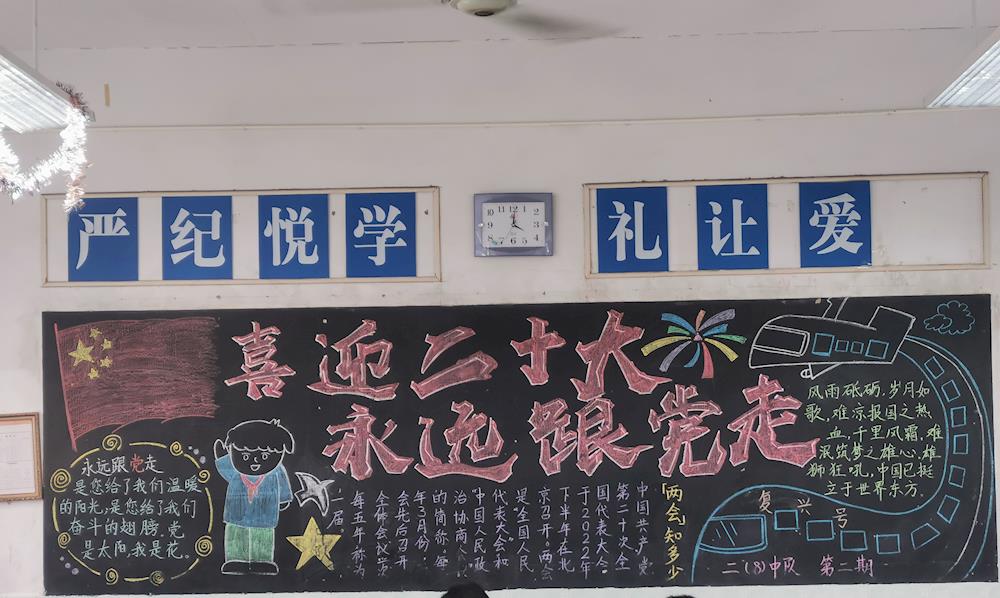 严纪悦学
礼让爱
喜迎二十大
永远跟党走
永远跟党走
是您给了我们温暖
的阳光,是您给了我们
奋斗的翅膀,党
是太阳,我是花。
「两会」知多少
中国共产党
第二十次全
国代表大会
于2022年
下半年在北
京召开。两会
是"全国人民
代表大会"和
"中国人民政
治协商
的简称。每
年3月份,
会先后召开
全体会议一次
每五年称为
一届。
风雨砥砺,岁月如
歌,难凉报国之热
血,千里风霜,难
泯筑梦之雄心,雄
狮狂吼,中国已挺
立于世界东方.
复兴号
二(8)中队 第二期